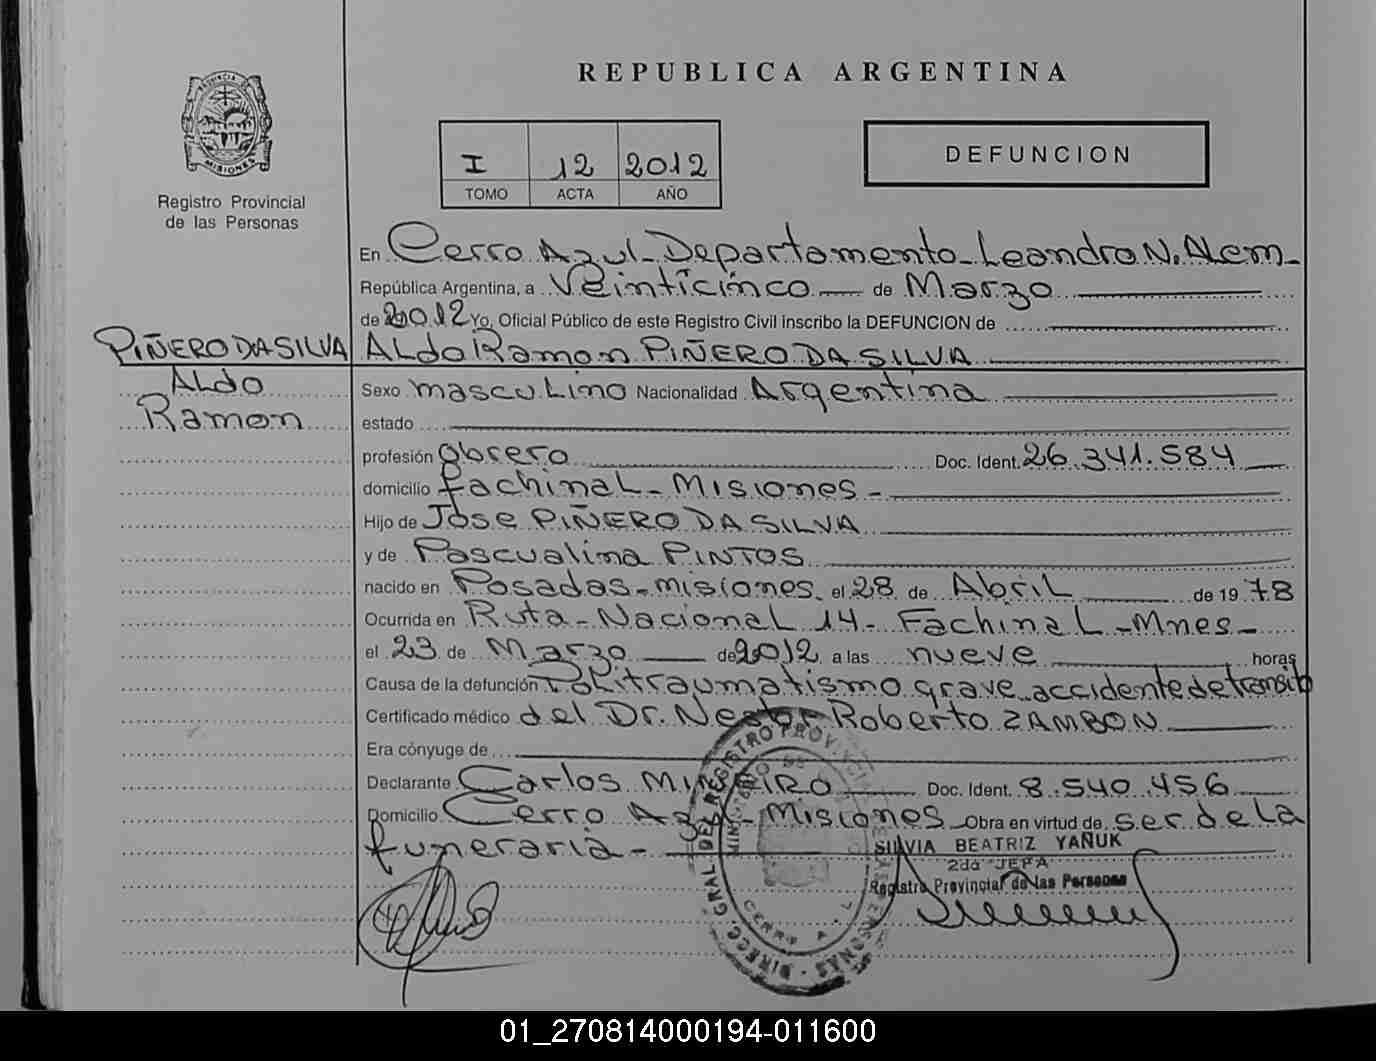 REPUBLICA ARGENTINA
PROVINCIA DE
MISIONES
Registro Provincial
de las Personas
I 12 2012
TOMO ACTA AÑO
DEFUNCION
En Cerro Azul - Departamento - Leandro N. Alem -
República Argentina, a Veinticinco de Marzo
de 2012 Yo, Oficial Público de este Registro Civil inscribo la DEFUNCION de
PIÑERO DA SILVA
Aldo
Ramon
Aldo Ramon PIÑERO DA SILVA
Sexo masculino Nacionalidad Argentina
estado
profesión obrero Doc. Ident. 26.341.584
domicilio fachinal - Misiones -
Hijo de Jose PIÑERO DA SILVA
y de Pascualina PINTOS
nacido en Posadas - misiones el 28 de Abril de 1978
Ocurrida en Ruta - Nacional 14 - Fachinal - Mnes -
el 23 de Marzo de 2012 a las nueve horas
Causa de la defunción Politraumatismo grave accidente de transito
Certificado médico del Dr. Nestor Roberto ZAMBON
Era cónyuge de
Declarante Carlos Doc. Ident. 8.540.456
Domicilio Cerro Azul - Misiones Obra en virtud de ser de la
funeraria -
SILVIA BEATRIZ YAÑUK
2da JEFA
Registro Provincial de las Personas
DIREC. GRAL. DEL REGISTRO PROVINCIAL DE LAS PERSONAS
MINISTERIO DE
CERRO AZUL
01_270814000194-011600